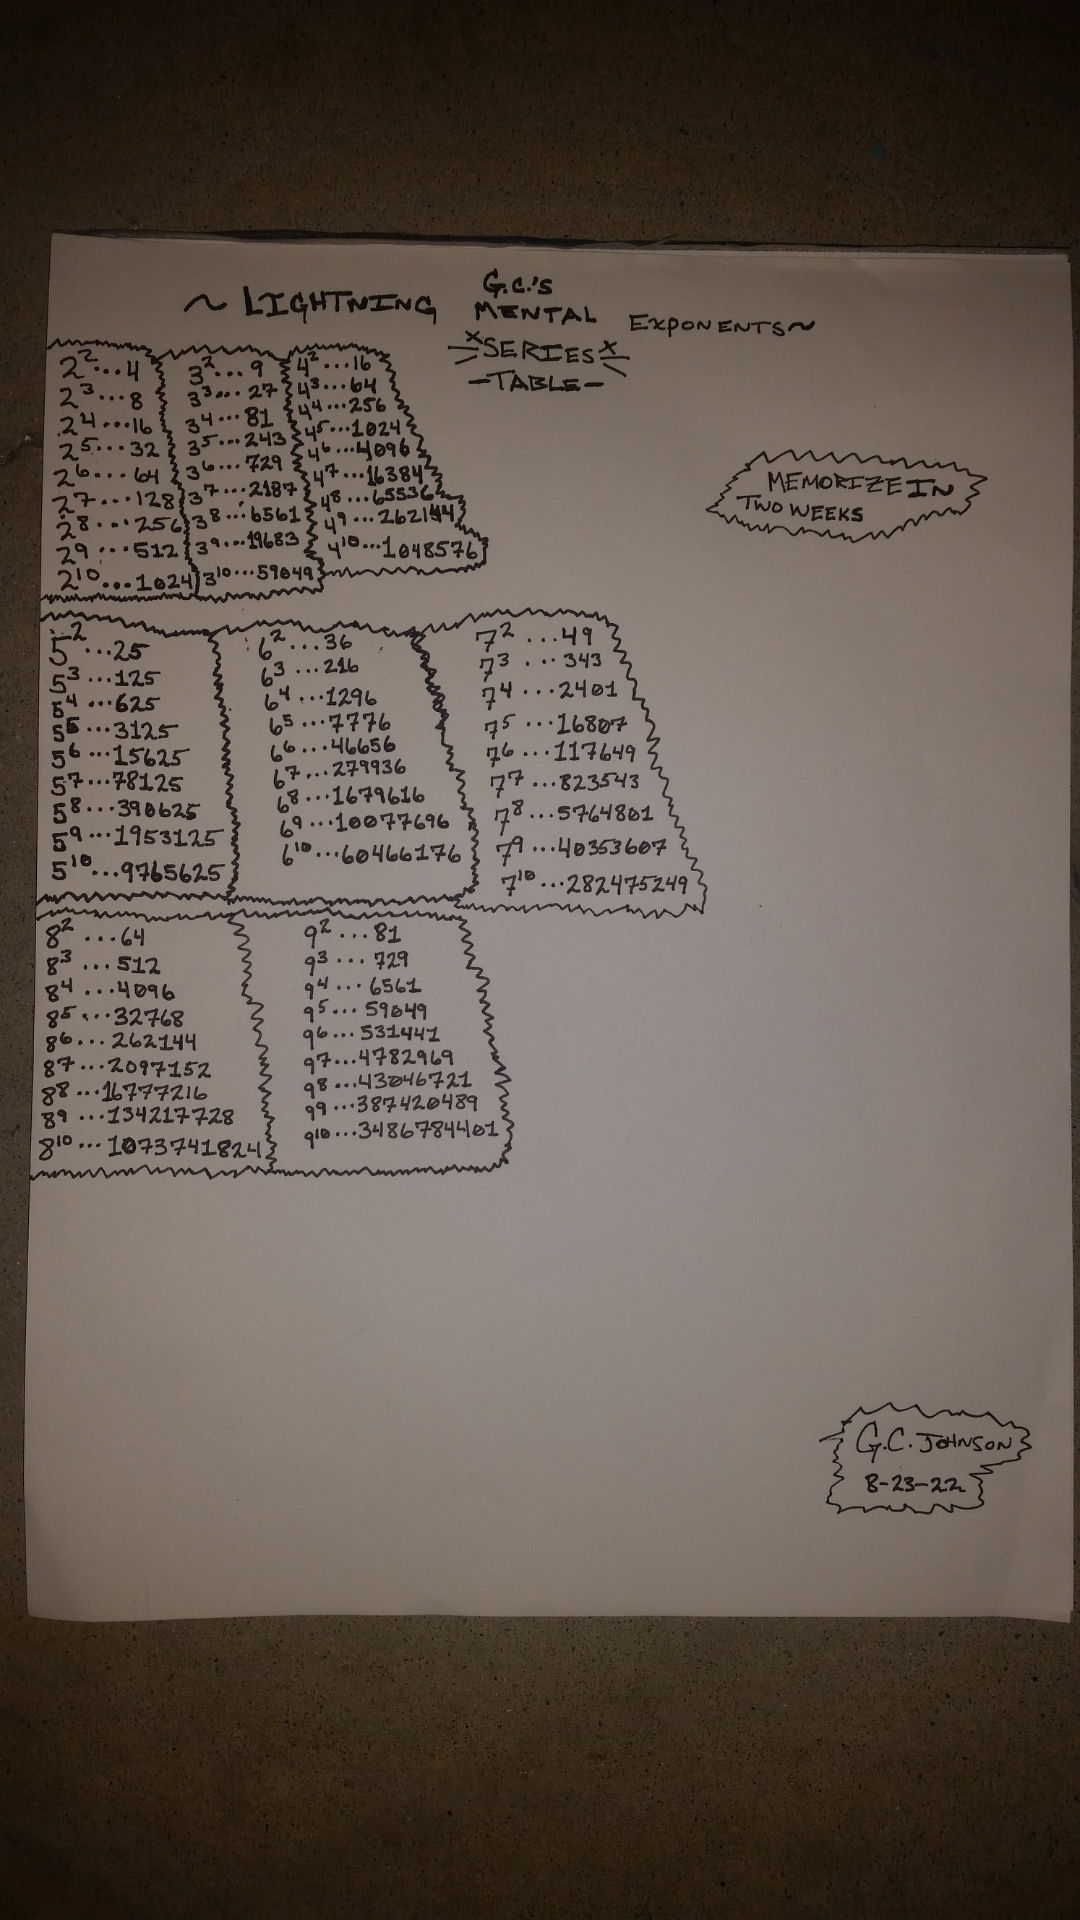 G.C.'s
~ LIGHTNING MENTAL EXPONENTS ~
x SERIES x
- TABLE -
MEMORIZE IN
TWO WEEKS
2² ... 4
2³ ... 8
2⁴ ... 16
2⁵ ... 32
2⁶ ... 64
2⁷ ... 128
2⁸ ... 256
2⁹ ... 512
2¹⁰ ... 1024
3² ... 9
3³ ... 27
3⁴ ... 81
3⁵ ... 243
3⁶ ... 729
3⁷ ... 2187
3⁸ ... 6561
3⁹ ... 19683
3¹⁰ ... 59049
4² ... 16
4³ ... 64
4⁴ ... 256
4⁵ ... 1024
4⁶ ... 4096
4⁷ ... 16384
4⁸ ... 65536
4⁹ ... 262144
4¹⁰ ... 1048576
5² ... 25
5³ ... 125
5⁴ ... 625
5⁵ ... 3125
5⁶ ... 15625
5⁷ ... 78125
5⁸ ... 390625
5⁹ ... 1953125
5¹⁰ ... 9765625
6² ... 36
6³ ... 216
6⁴ ... 1296
6⁵ ... 7776
6⁶ ... 46656
6⁷ ... 279936
6⁸ ... 1679616
6⁹ ... 10077696
6¹⁰ ... 60466176
7² ... 49
7³ ... 343
7⁴ ... 2401
7⁵ ... 16807
7⁶ ... 117649
7⁷ ... 823543
7⁸ ... 5764801
7⁹ ... 40353607
7¹⁰ ... 282475249
8² ... 64
8³ ... 512
8⁴ ... 4096
8⁵ ... 32768
8⁶ ... 262144
8⁷ ... 2097152
8⁸ ... 16777216
8⁹ ... 134217728
8¹⁰ ... 1073741824
9² ... 81
9³ ... 729
9⁴ ... 6561
9⁵ ... 59049
9⁶ ... 531441
9⁷ ... 4782969
9⁸ ... 43046721
9⁹ ... 387420489
9¹⁰ ... 3486784401
G.C. JOHNSON
8-23-22